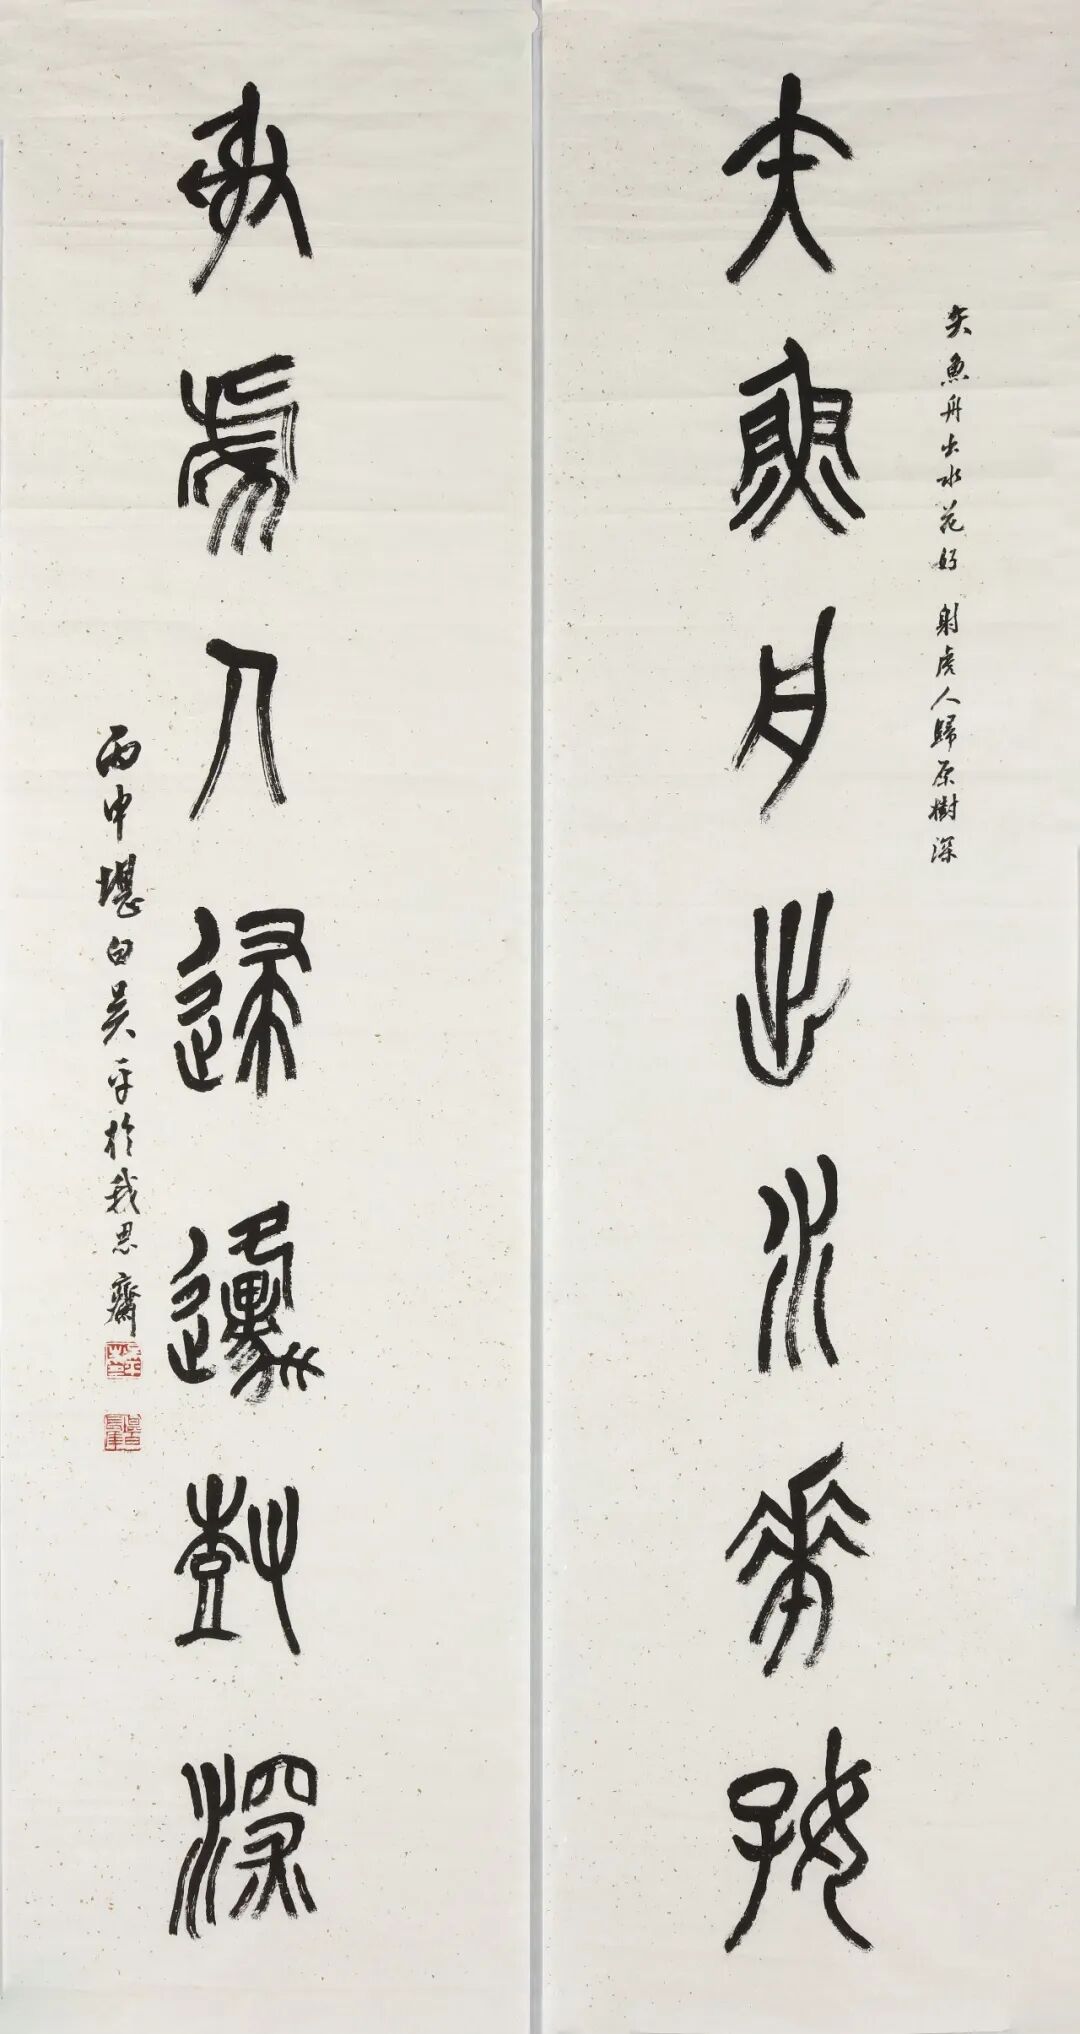 矢魚舟出水華好
矢魚舟出水花好 射虎人歸原樹深
射虎人歸邍樹深
丙申堪白吳平於我思齋